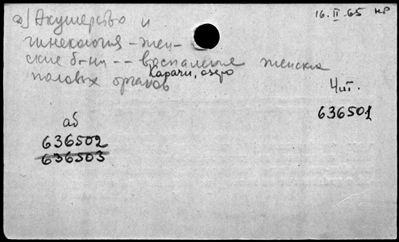 16.II.65 нр
а) Акушерство и
гинекология - жен-
ские б-ни -- воспаления женских
Карачи, озеро
половых органов
Чит.
636501
аб
636502
636503